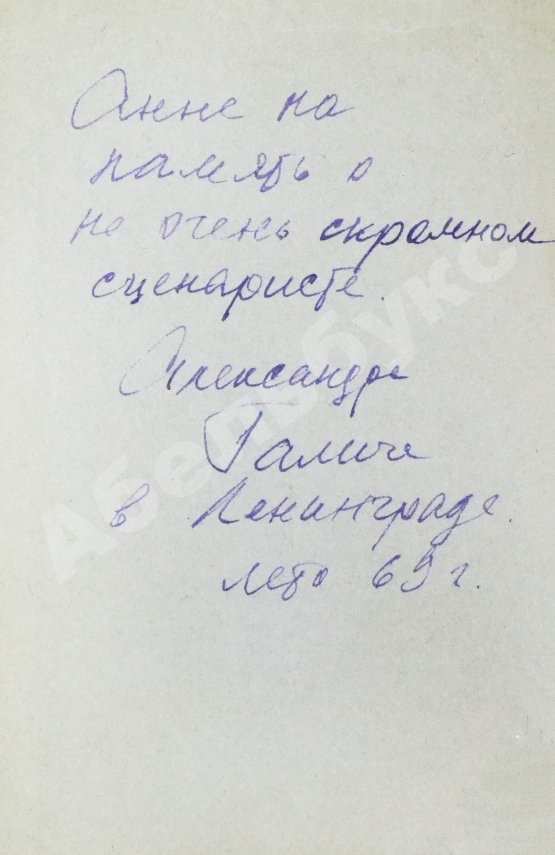 Анне на
память о
не очень скромном
сценаристе.
Александре
Галиче
в Ленинграде.
лето 69 г.
Абельбукс